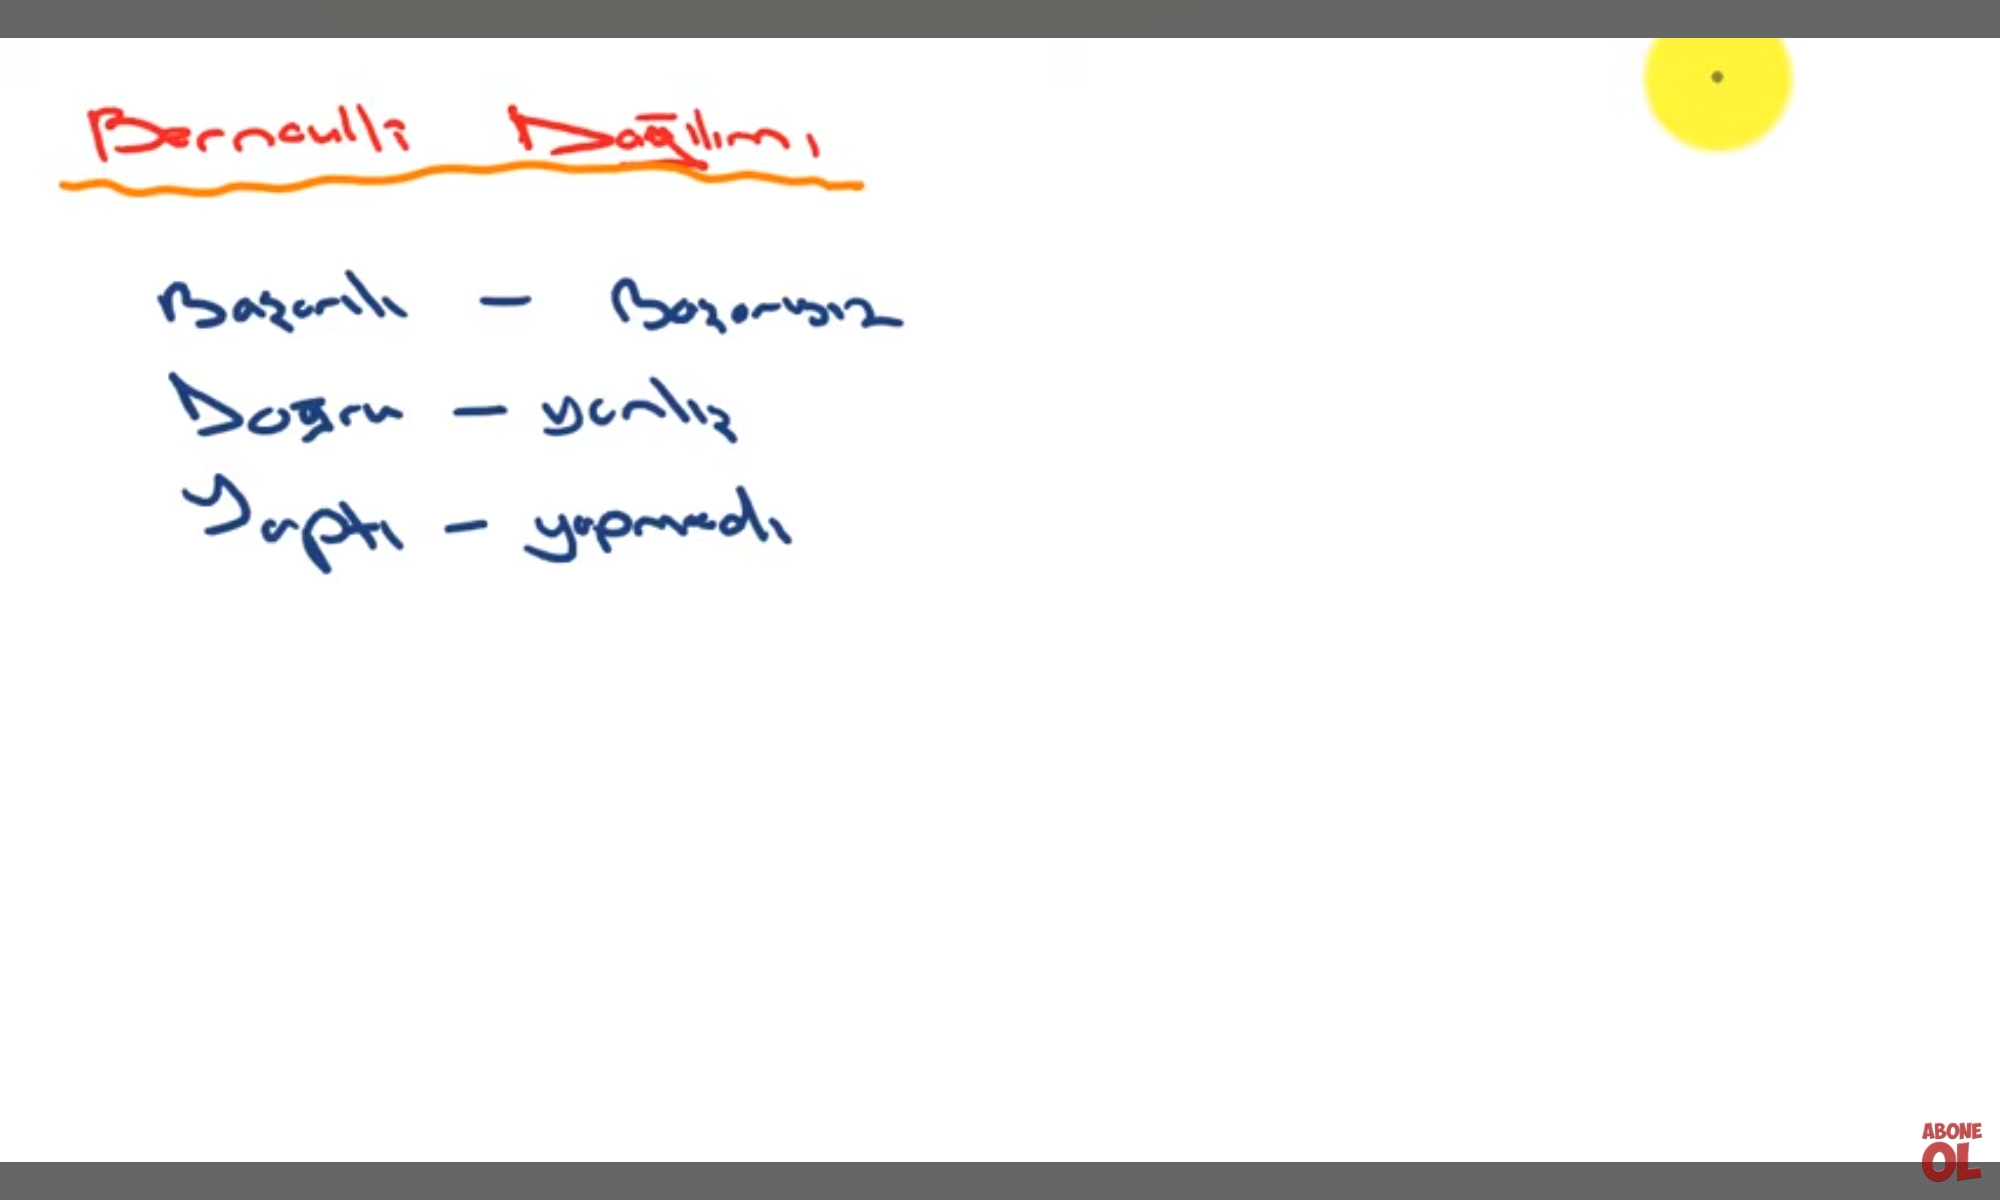 Bernoulli Dağılımı
Başarılı - Başarısız
Doğru - yanlış
Yaptı - yapmadı
ABONE
OL